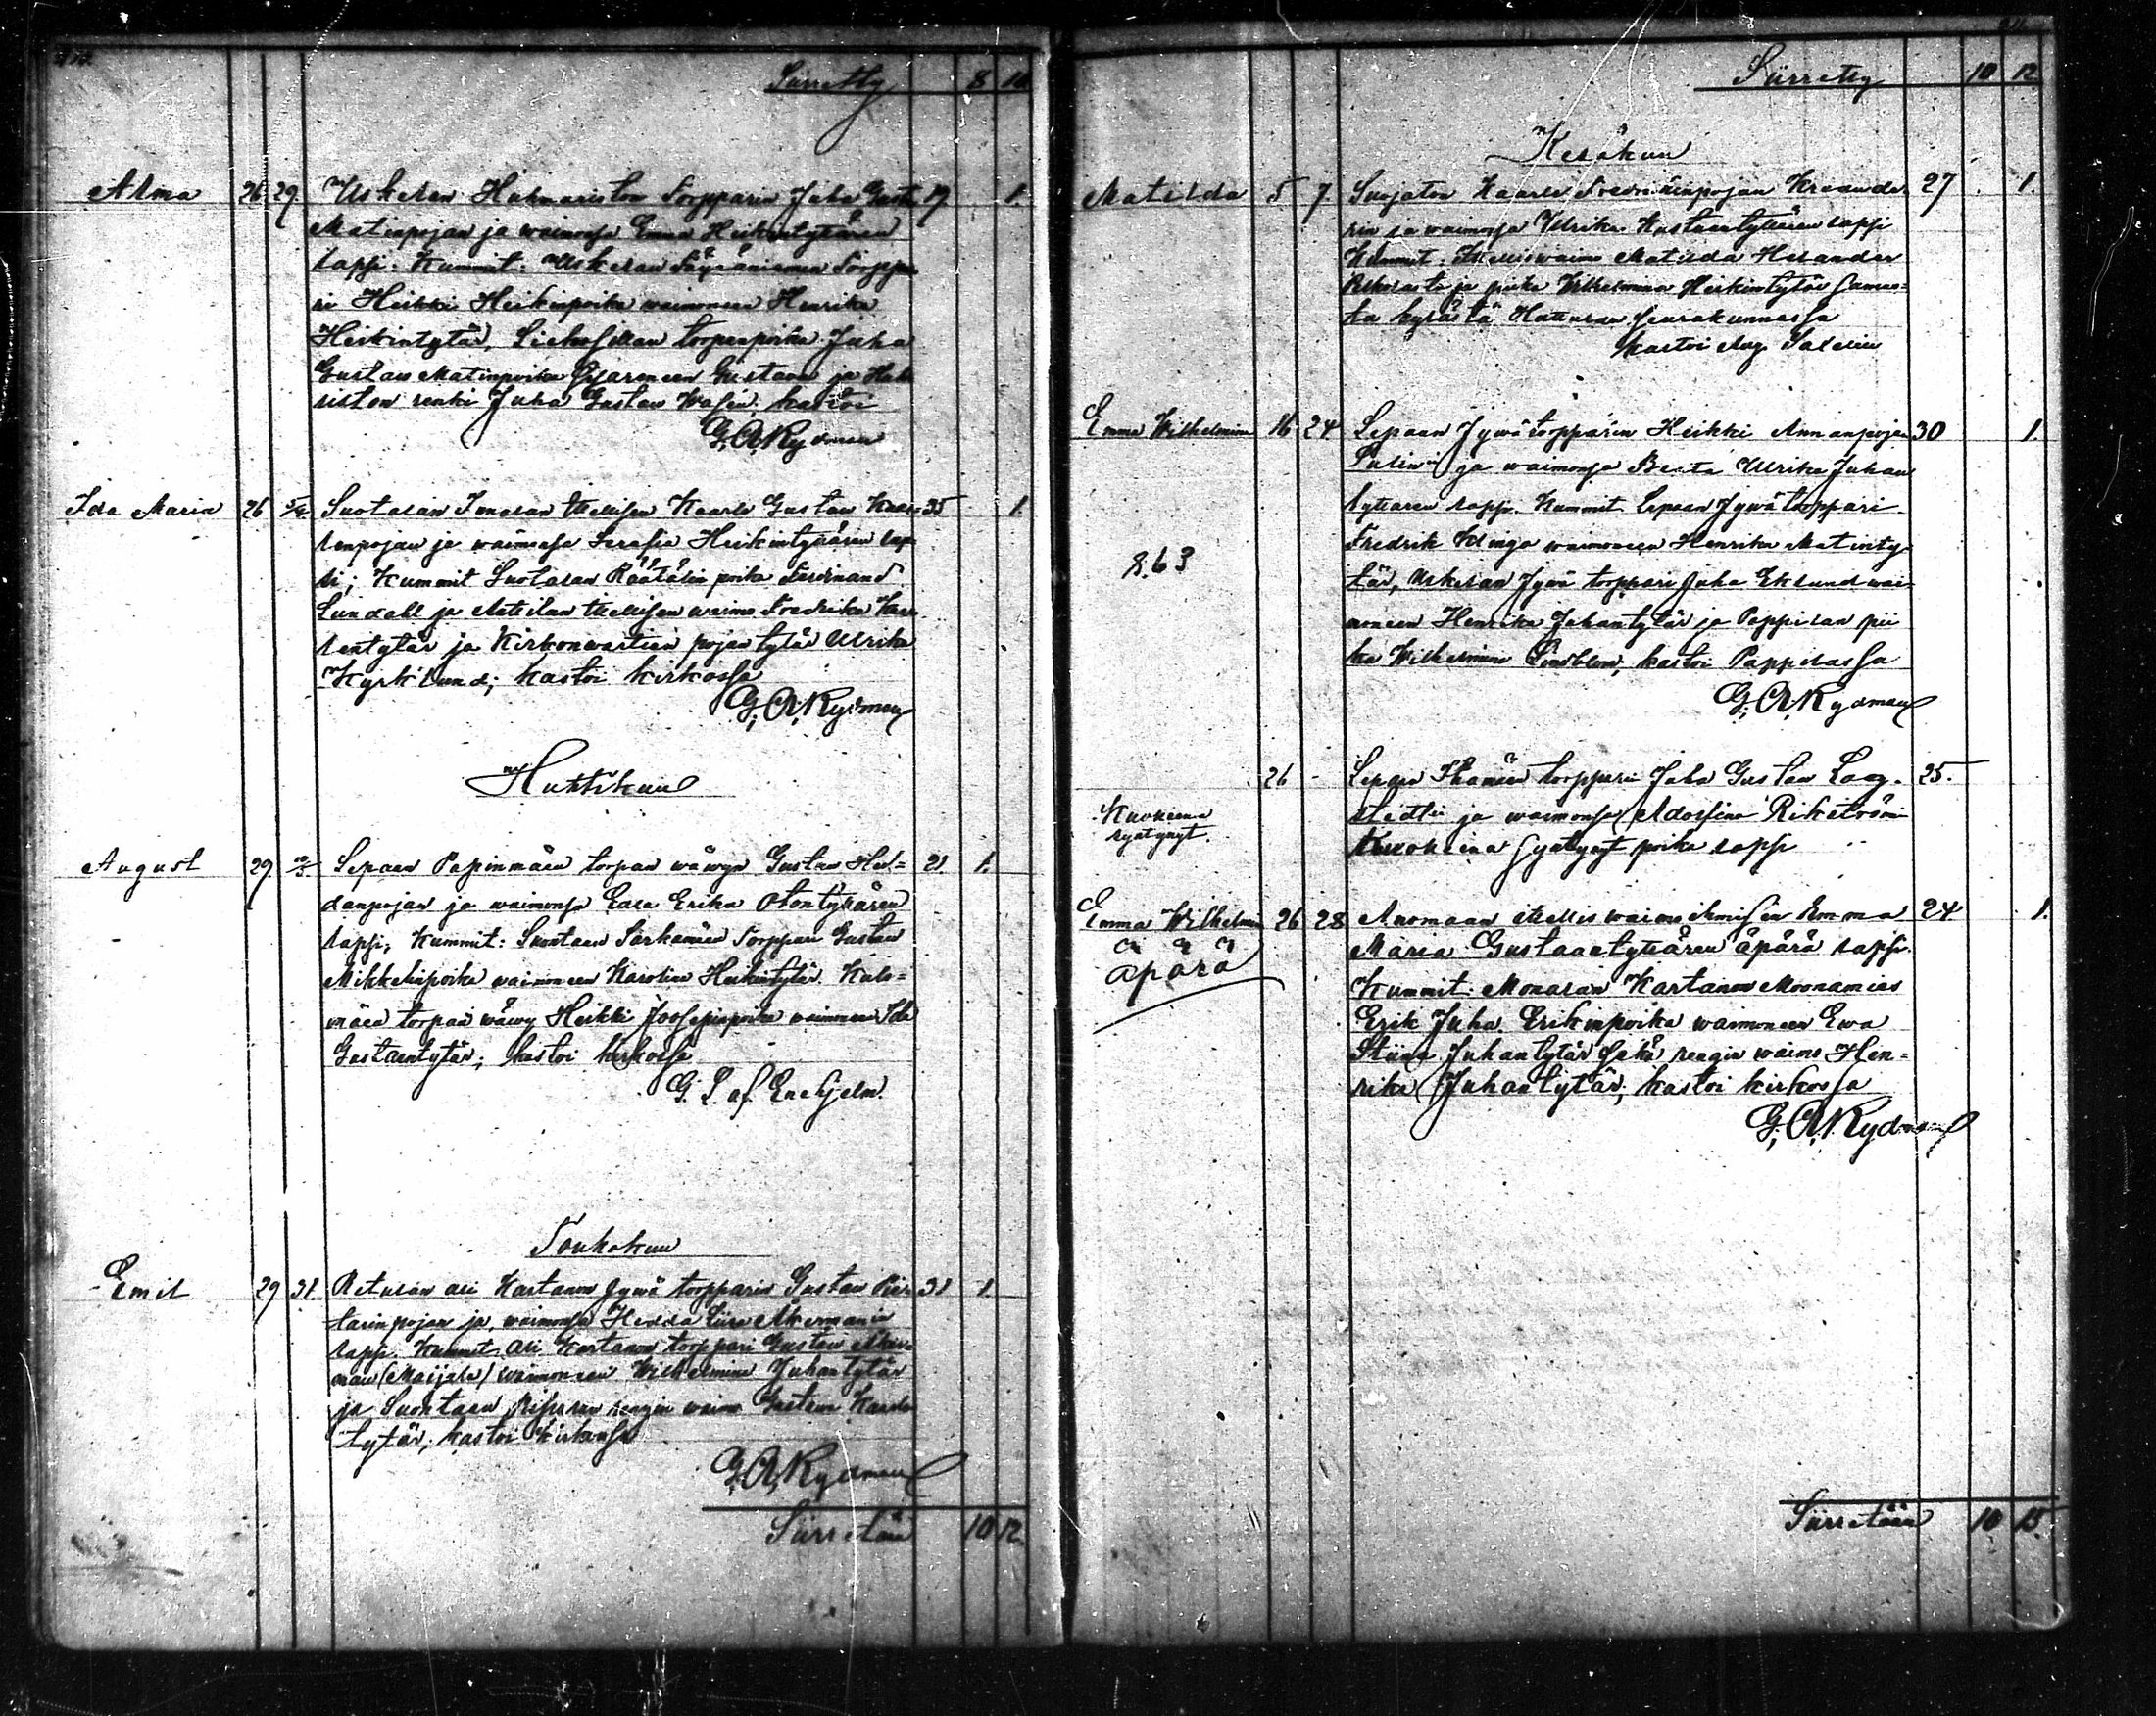 Siirretty 8 10
Alma 26 29. Uskelan Huhmariston Torpparin Juha Gusta 19 1.
Matinpojan ja waimonsa Emma Heikintyttären
lapsi. Kummit: Uskelan Torppa
ri Heikki Heikinpoika waimoneen Henrika
Heikintytär, torpanpoika Juha
Gustaw Matinpoika Gustawa ja
riston renki Juha Gustaw kastoi
G. A. Rydman
Ida Maria 26 5/4. Suotalan Itsellisen Kaarle Gustaw Kaar 35 1.
lenpojan ja waimonsa Serafia Heikintyttären lap
si; Kummit Suotalan Räätälin poika Ferdinand
Lundahl ja Itsellisen waimo Fredrika Kaar
lentytär ja Kirkonwartian pojan tytär Ulrika
Kyrklund; kastoi kirkossa
G. A. Rydman
Huhtikuu
August 29. Lepaan Papinmäen torpan wäwyn Gustaw Hul= 21. 1.
danpojan ja waimonsa Erika Otontyttären
lapsi; Kummit: Suontaan Torppari Gustaw
Mikkelinpoika waimoneen Karolina Heikintytär. Kal
mäen torpan wäwy Heikki Joosepinpoika waimoneen Ida
Gustawntytär; kastoi kirkossa
G. L. af Enehjelm.
Toukokuu
Emil 29 31. Retulan ali Kartanon Jywä torpparin Gustaw 31 1
tarinpojan ja waimonsa Hedda Akermanin
lapsi. Kummit ali Kartanon torppari Gustaw
man (Maijala) waimoneen Wilhelmina Juhantytär
ja Suontaan rengin waimo Gustawa Kaarlen
tytär; kastoi kirkossa
G. A. Rydman
Siirretään 10 12.
Siirretty 10 12
Kesäkuu
Matilda 5 7. Suojaton Kaarle Fredrikinpojan Kraande 27 1.
rin ja waimonsa Ulrika Kustaantyttären lapsi
Kummit: Itsellis waimo Matilda Helander
ja piika Wilhelmina Heikintytär samas=
ta kylästä Hattulan seurakunnassa
kastoi Aug. Salenius
Emma Wilhelmina 16 24 Lepaan Jywätorpparin Heikki Annanpojan 30 1.
Sulin'in ja waimonsa Beata Ulrika Juhan
tyttären lapsi. Kummit Lepaan Jywätorppari
Fredrik Klinga waimoneen Henrika Matinty
tär, Uskelan Jywä torppari Juha Eklund wai=
moneen Henrika Juhantytär ja Pappilan pii
ka Wilhelmina Lindblom; kastoi Pappilassa
8.63
G. A. Rydman
26 - Lepaan torppari Juha Gustaw Lag= 25.
Kuolleena
syntynyt.
stedtin ja waimonsa Adolfina Rikström
kuolleena syntynyt poika lapsi
Emma Wilhelmina 26 28 Anomaan itsellis waimoihmisen Emma 24 1.
äpärä
Maria Gustaantyttären äpärä lapsi.
Kummit: Monalan Kartanon Moonamies
Erik Juha Erikinpoika waimoneen Ewa
Stiina Juhantytär sekä rengin waimo Hen=
rika Juhantytär; kastoi kirkossa
G. A. Rydman
Siirretään 10 15.